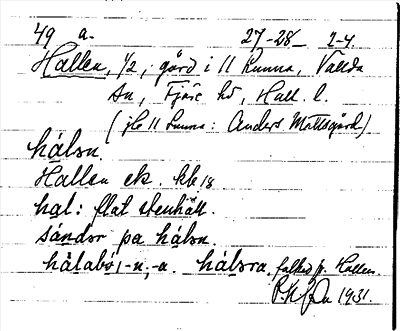 49 a. 27-28 2-4.
Hallen, 1/2, gård i 11 Lunna, Vallda
sn, Fjäre hd, Hall. l.
(jfr 11 Lunna: Anders Mattsgård).
hálsn.
Hallen ek kbl 18
hal: flat stenhäll.
sándor pa hálsn.
hálabo, -n, -a. hálsra folket p. Hallen.
1931.